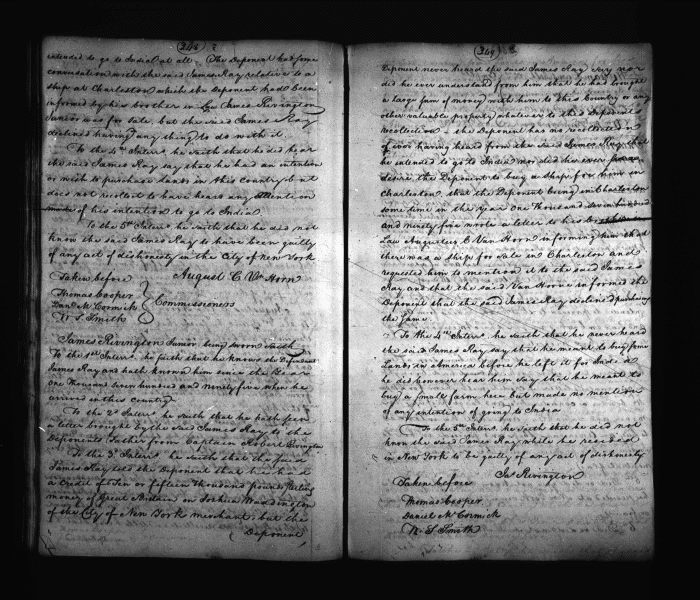 (248)
intended to go to India at all – The Deponent had some
conversation with the said James Ray relative to a
ship at Charleston which the Deponent had been
informed by his brother in Law James Rivington
Junior was for sale but the said James Ray
declined having any thing to do with it.
To the 4th Inters. he saith that he did hear
the said James Ray say that he had an intention
or wish to purchase Lands in this Country but
does not recollect to have heard any
made of his intention to go to India
To the 5th Inters. he saith that he did not
know the said James Ray to have been guilty
of any act of dishonesty in the City of New York
August C Van Horn
Taken before
Thomas Cooper
Danl. McCormick
W. S. Smith
Commissioners
James Rivington Junior being sworn saith
To the 1st Inters. he saith that he knows the Defendant
James Ray and hath known him since the year
one thousand seven hundred and ninety five when he
arrived in this country
To the 2d Inters. he saith that he hath seen
a letter brought by the said James Ray to the
Deponents Father from Captain Robert Rivington
To the 3d Inters. he saith that the said
James Ray told the Deponent that he had
a Credit of Ten or fifteen thousand pounds sterling
money of Great Britain on Joshua Waddington
of the City of New York merchant but the
Deponent
(249)
Deponent never heard the said James Ray say nor
did he ever understand from him that he had brought
a large sum of money with him to this Country or any
other valuable property whatever to this Deponents
recollection – the Deponent has no recollection
of ever having heard from the said James Ray that
he intended to go to India nor did he ever
desire the Deponent to buy a Ship for him in
Charleston, that the Deponent being in Charleston
some time in the year one thousand seven hundred
and ninety five wrote a letter to his
Law Augustus C Van Horn informing him that
there was a ship for sale in Charleston and
requested him to mention it to the said James
Ray and that the said Van Horn informed the
Deponent that the said James Ray declined purchasing
the same.
To the 4th Inters. he saith that he never heard
the said James Ray say that he meant to buy
Lands in America before he left it for India
he did however hear him say that he meant to
buy a small farm here but made no mention
of any intention of going to India
To the 5th Inters. he saith that he did not
know the said James Ray while he resided
in New York to be guilty of any act of dishonesty
Jas Rivington
Taken before
Thomas Cooper
Daniel McCormick
W. S. Smith